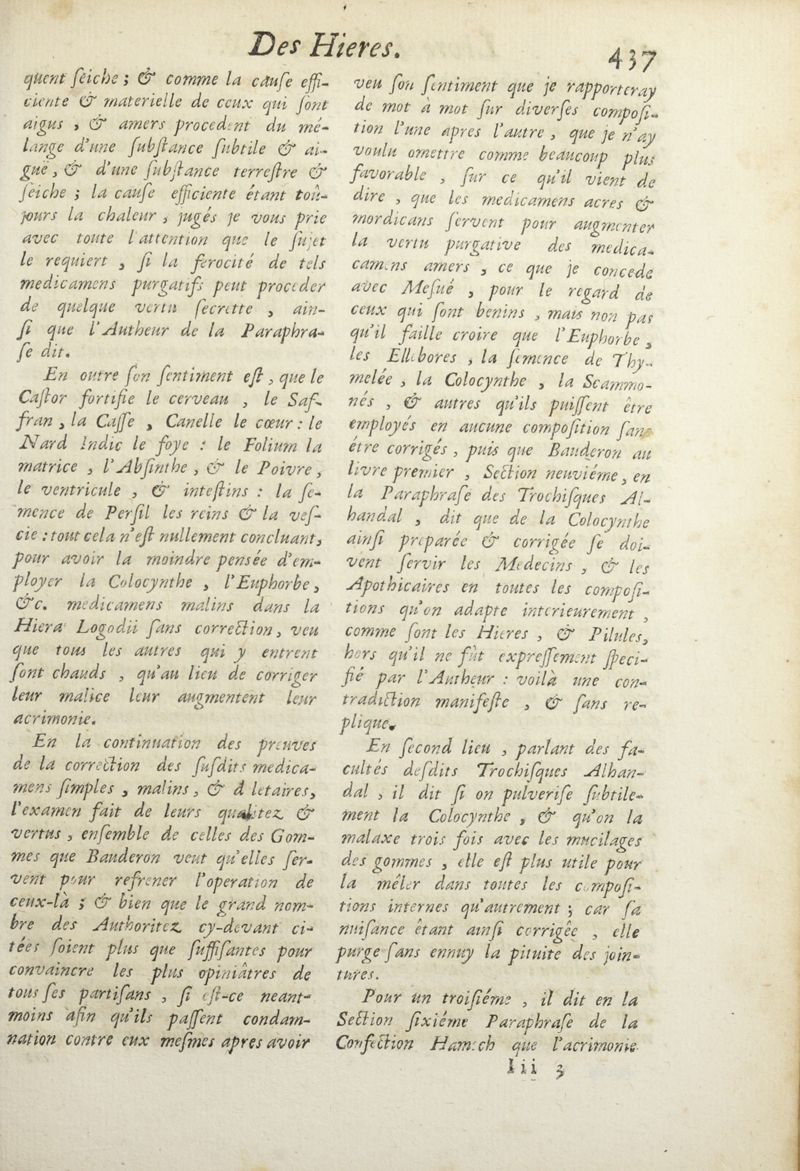 Des Hieres. 437
quent ſeiche ; & comme la cauſe effi-
ciente & materielle de ceux qui ſont
aigus , & amers procedent du mé-
lange d'une ſubſtance ſubtile & ai-
guë , & d'une ſubſtance terreſtre &
ſeiche ; la cauſe efficiente étant toû-
jours la chaleur , jugés je vous prie
avec toute l'attention que le ſujet
le requiert , ſi la ferocité de tels
medicamens purgatifs peut proceder
de quelque vertu ſecrette , ain-
ſi que l'Autheur de la Paraphra-
ſe dit.
En outre ſon ſentiment eſt , que le
Caſtor fortifie le cerveau , le Saf-
fran , la Caſſe , Canelle le cœur : le
Nard Indic le foye : le Folium la
matrice , l'Abſinthe , & le Poivre ,
le ventricule , & inteſtins : la ſe-
mence de Perſil les reins & la veſ-
cie : tout cela n'eſt nullement concluant,
pour avoir la moindre pensée d'em-
ployer la Colocynthe , l'Euphorbe ,
&c. medicamens malins dans la
Hiera Logodii ſans correction , veu
que tous les autres qui y entrent
ſont chauds , qu'au lieu de corriger
leur malice leur augmentent leur
acrimonie.
En la continuation des preuves
de la correction des ſuſdits medica-
mens ſimples , malins , & d letaires,
l'examen fait de leurs qualitez &
vertus , enſemble de celles des Gom-
mes que Bauderon veut qu'elles ſer-
vent pour refrener l'operation de
ceux-là ; & bien que le grand nom-
bre des Authoritez cy-devant ci-
tées ſoient plus que ſuffiſantes pour
convaincre les plus opiniâtres de
tous ſes partiſans , ſi eſt-ce neant-
moins afin qu'ils paſſent condam-
nation contre eux meſmes apres avoir
veu ſon ſentiment que je rapporteray
de mot à mot ſur diverſes compoſi-
tion l'une apres l'autre , que je n'ay
voulu omettre comme beaucoup plus
favorable , ſur ce qu'il vient de
dire , que les medicamens acres &
mordicans ſervent pour augmenter
la vertu purgative des medica-
camens amers , ce que je concede
avec Meſué , pour le regard de
ceux qui ſont benins , mais non pas
qu'il faille croire que l'Euphorbe ,
les Ellebores , la ſemence de Thy-
melée , la Colocynthe , la Scammo-
nés , & autres qu'ils puiſſent être
employés en aucune compoſition ſans
étre corrigés , puis que Bauderon au
livre premier , Section neuviéme , en
la Paraphraſe des Trochiſques Al-
handal , dit que de la Colocynthe
ainſi preparée & corrigée ſe doi-
vent ſervir les Medecins , & les
Apothicaires en toutes les compoſi-
tions qu'on adapte interieurement ,
comme ſont les Hieres , & Pilules,
hors qu'il ne fût expreſſement ſpeci-
fié par l'Autheur : voilà une con-
tradiction manifeſte , & ſans re-
plique.
En ſecond lieu , parlant des fa-
cultés deſdits Trochiſques Alhan-
dal , il dit ſi on pulveriſe ſubtile-
ment la Colocynthe , & qu'on la
malaxe trois fois avec les mucilages
des gommes , elle eſt plus utile pour
la mêler dans toutes les compoſi-
tions internes qu'autrement ; car ſa
nuiſance étant ainſi corrigée , elle
purge ſans ennuy la pituite des join-
tures.
Pour un troiſiéme , il dit en la
Section ſixiéme Paraphraſe de la
Confection Hamech que l'acrimonie
Iii 3